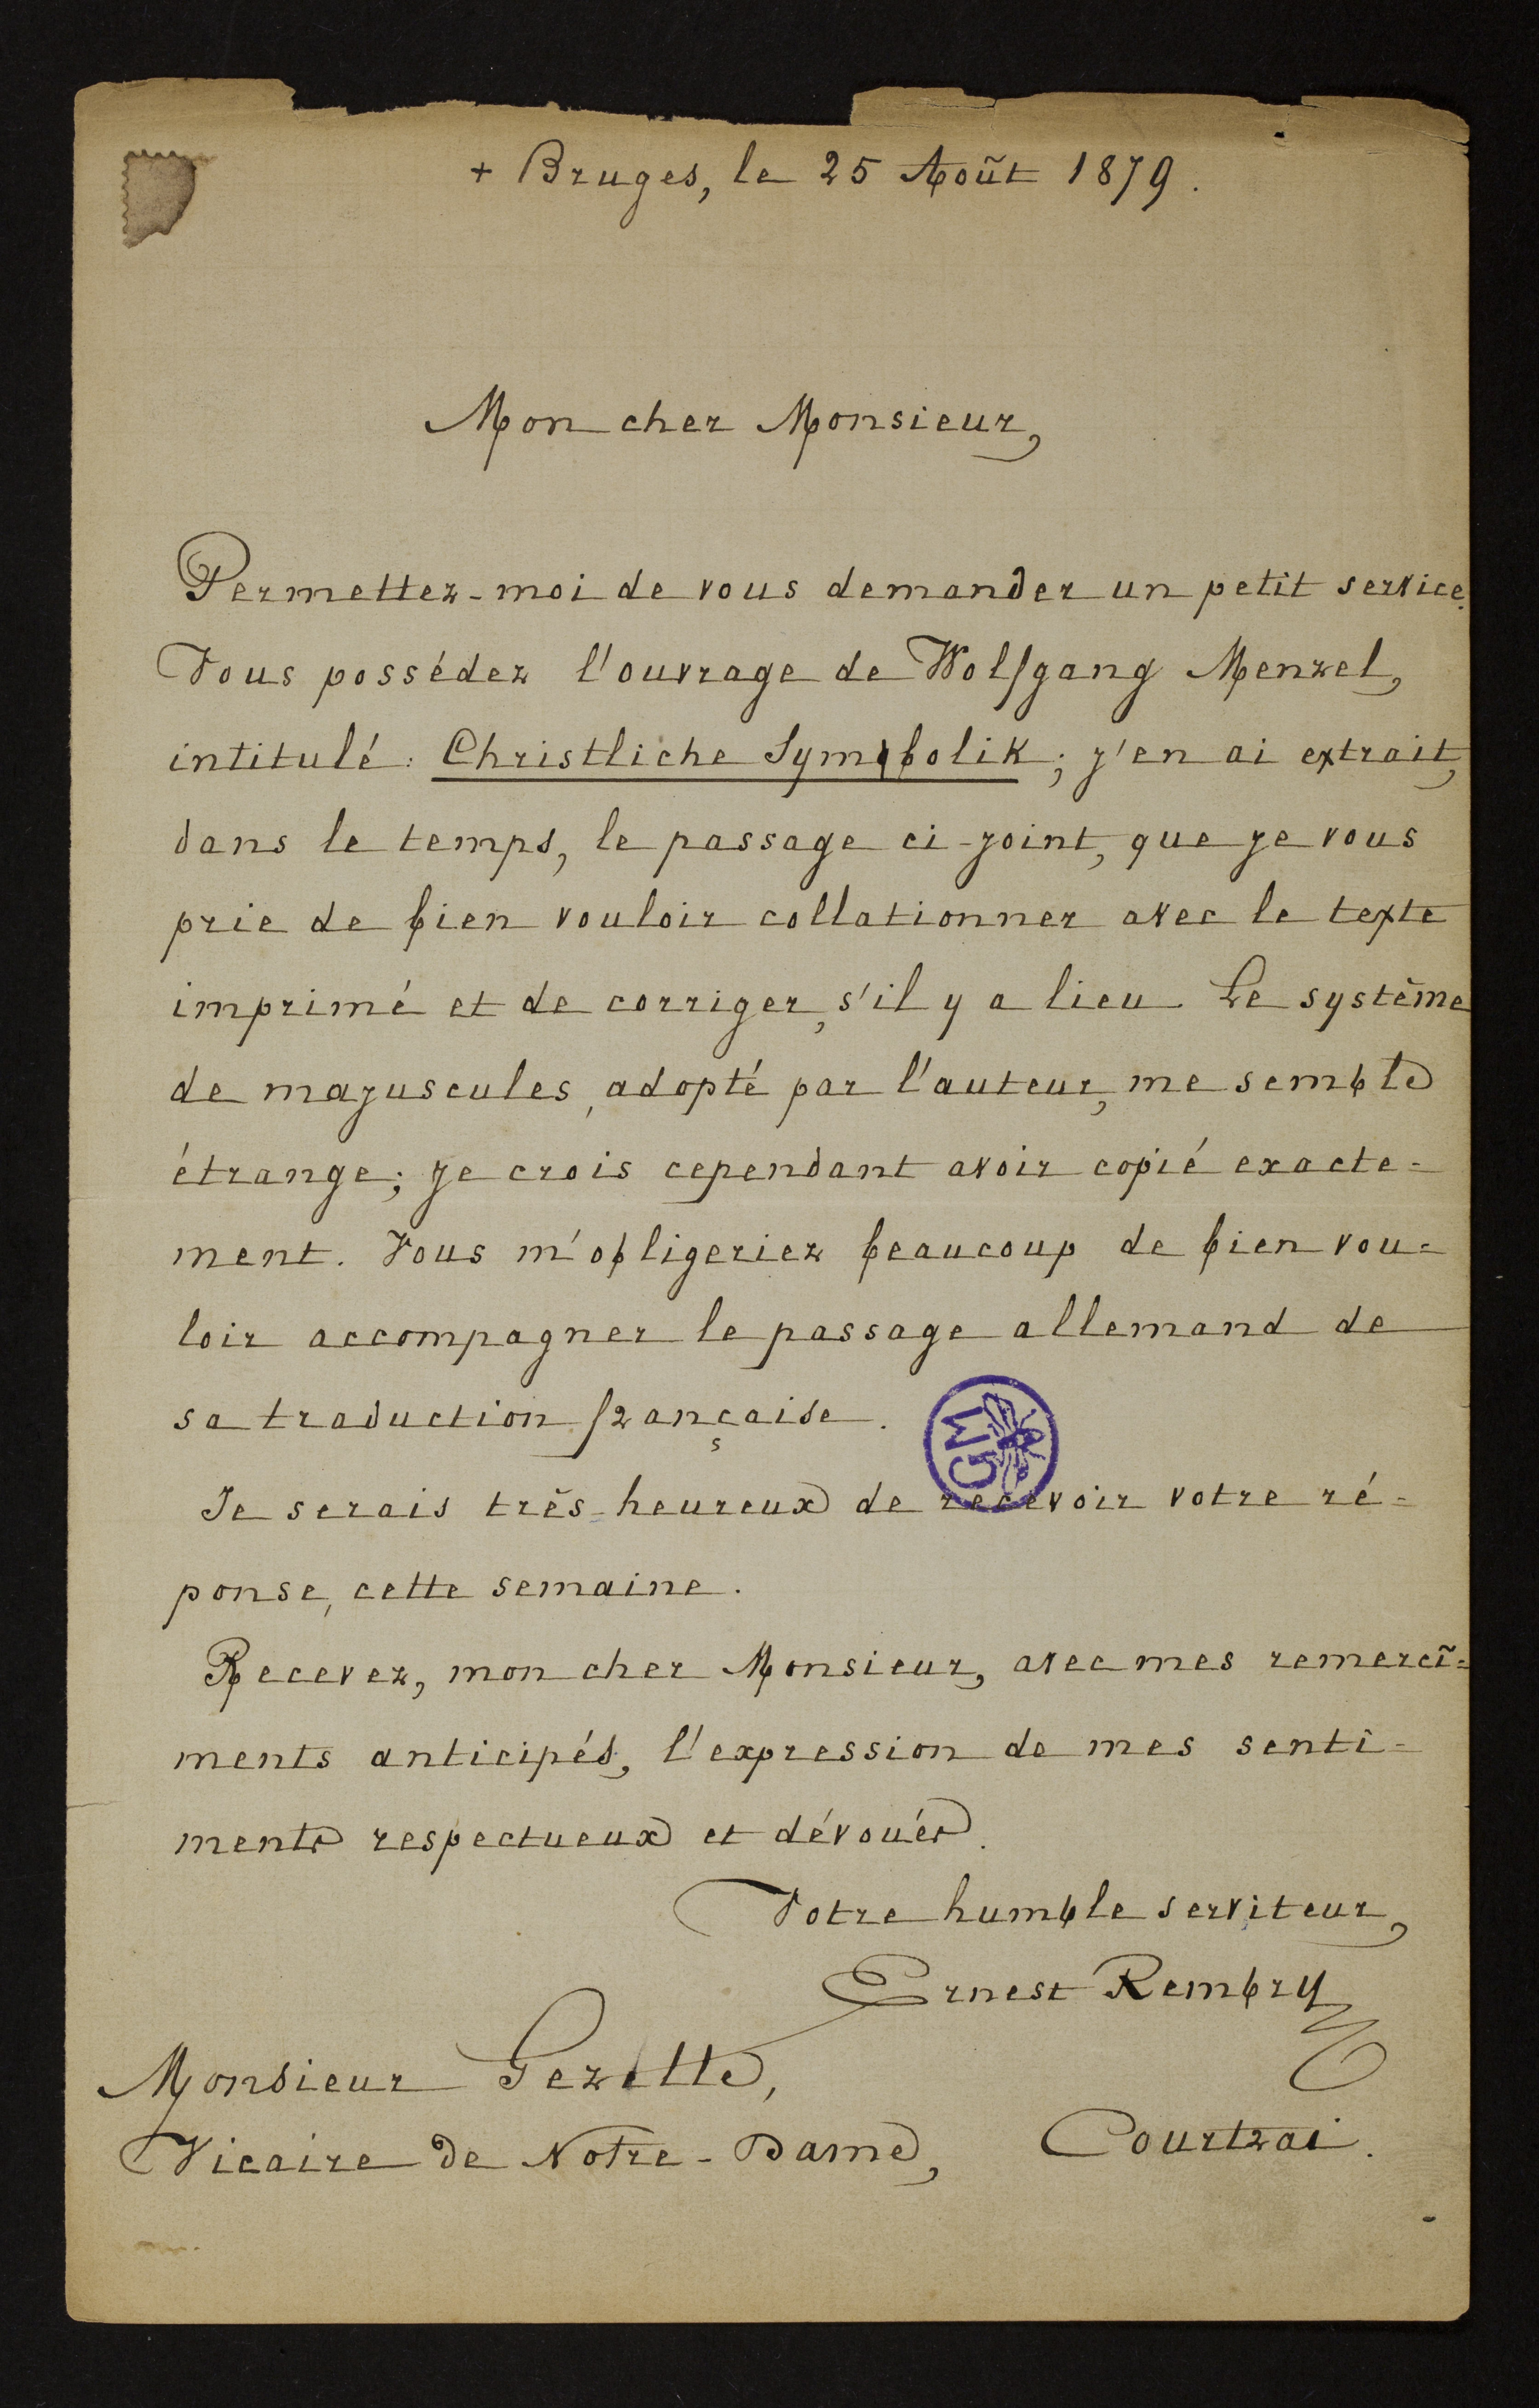 + Bruges, le 25 Août 1879.
Mon cher Monsieur,
Permettez-moi de vous demander un petit service.
Vous possédez l'ouvrage de Wolfgang Menzel,
intitulé: Christliche Symbolik; j'en ai extrait,
dans le temps, le passage ci-joint, que je vous
prie de bien vouloir collationner avec le texte
imprimé et de corriger, s'il y a lieu. Le système
de majuscules, adopté par l'auteur, me semble
étrange; je crois cependant avoir copié exacte-
ment. Vous m'obligeriez beaucoup de bien vou-
loir accompagner le passage allemand de
sa traduction française.
Je serais très-heureux de recevoir votre ré-
ponse, cette semaine.
Recevez, mon cher Monsieur, avec mes remercî-
ments anticipés, l'expression de mes senti-
ments respectueux et dévoués.
Votre humble serviteur,
Ernest Rembry
Monsieur Gezelle,
Vicaire de Notre-Dame, Courtrai.
GM